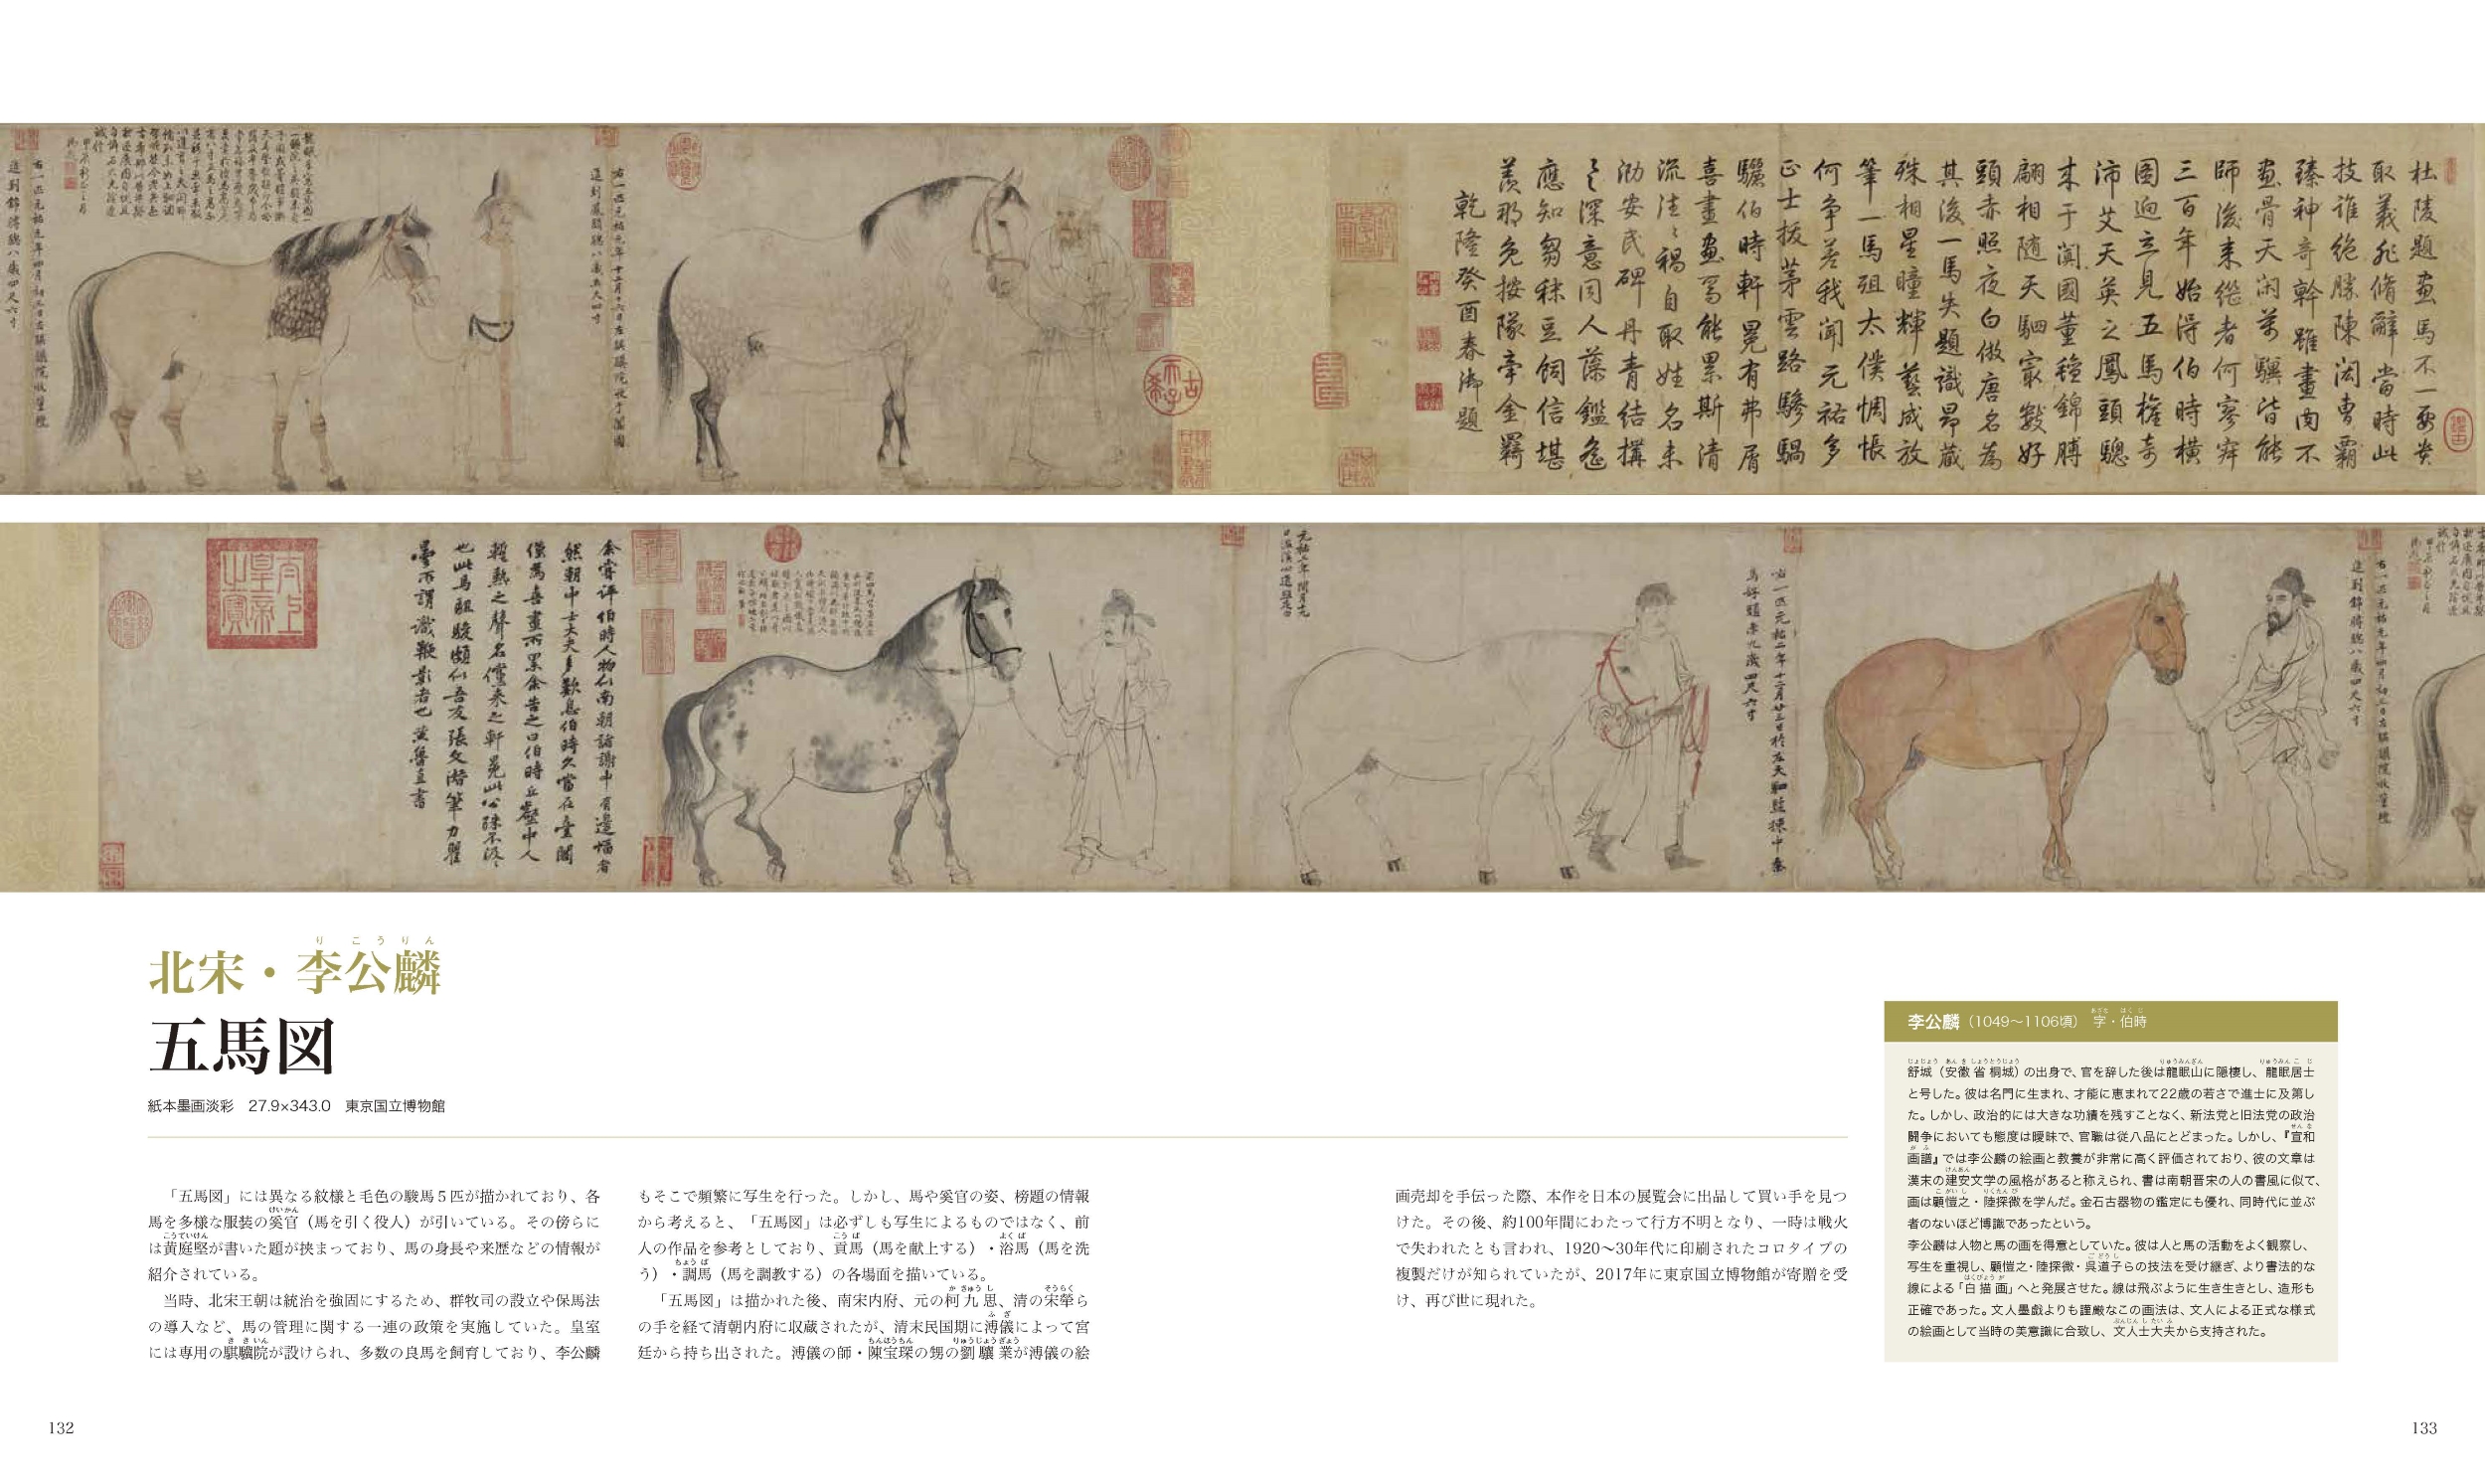 杜陵題畫馬不一要岩
取義飛脩辭當時此
技誰絶勝陳閎曹霸
臻神奇幹雖畫肉不
畫骨天閑萬驥皆能
師後来繼者何寥寥
三百年始得伯時橫
圖迥立見五馬權奇
沛艾天英之鳳頭驄
来于闐國董氊錦膊
翩相随天駟家數好
頭赤照夜白倣唐名為
其後一馬失題識昂藏
殊相星瞳輝藝成放
筆一馬殂太僕惆悵
何争差我聞元祐多
正士拔茅雲路驂騧
驪伯時軒冕有弗屑
喜畫畫馬能累斯清
流法禍自取姓名未
泐安民碑丹青結搆
之深意同人藻鑑忽
應知芻秣豆飼信堪
羨那免按隊牽金羁
乾隆癸酉春御題
右一匹元祐元年十二月十六日左騏驥院收于闐國
進到鳳頭驄八歲五尺四寸
右一匹元祐元年四月初三日左騏驥院收董氊
進到錦膊驄八歲四尺六寸
右一匹元祐二年十二月廿三日於左天駟監揀中秦
馬好頭赤九歲四尺六寸
元祐三年閏月十九
日温溪心進照夜白
余嘗評伯時人物似南朝諸謝中有邊幅者
然朝中士大夫多歎息伯時久當在臺閣
僅為喜畫所累余告之曰伯時丘壑中人
暫熱之聲名儻来之軒冕此公殊不汲汲
也此馬駔駿頗似吾友張文潜筆力瞿
曇所謂識鞭影者也黄魯直書
太上皇帝之寶
北宋・李公麟
り こうりん
五馬図
紙本墨画淡彩　27.9×343.0　東京国立博物館
「五馬図」には異なる紋様と毛色の駿馬５匹が描かれており、各
馬を多様な服装の奚官（馬を引く役人）が引いている。その傍らに
は黄庭堅が書いた題が挟まっており、馬の身長や来歴などの情報が
紹介されている。
当時、北宋王朝は統治を強固にするため、群牧司の設立や保馬法
の導入など、馬の管理に関する一連の政策を実施していた。皇室
には専用の騏驥院が設けられ、多数の良馬を飼育しており、李公麟
もそこで頻繁に写生を行った。しかし、馬や奚官の姿、榜題の情報
から考えると、「五馬図」は必ずしも写生によるものではなく、前
人の作品を参考としており、貢馬（馬を献上する）・浴馬（馬を洗
う）・調馬（馬を調教する）の各場面を描いている。
「五馬図」は描かれた後、南宋内府、元の柯九思、清の宋犖ら
の手を経て清朝内府に収蔵されたが、清末民国期に溥儀によって宮
廷から持ち出された。溥儀の師・陳宝琛の甥の劉驤業が溥儀の絵
画売却を手伝った際、本作を日本の展覧会に出品して買い手を見つ
けた。その後、約100年間にわたって行方不明となり、一時は戦火
で失われたとも言われ、1920〜30年代に印刷されたコロタイプの
複製だけが知られていたが、2017年に東京国立博物館が寄贈を受
け、再び世に現れた。
李公麟（1049〜1106頃）　字・伯時
舒城（安徽省桐城）の出身で、官を辞した後は龍眠山に隠棲し、龍眠居士
と号した。彼は名門に生まれ、才能に恵まれて22歳の若さで進士に及第し
た。しかし、政治的には大きな功績を残すことなく、新法党と旧法党の政治
闘争においても態度は曖昧で、官職は従八品にとどまった。しかし、『宣和
画譜』では李公麟の絵画と教養が非常に高く評価されており、彼の文章は
漢末の建安文学の風格があると称えられ、書は南朝晋宋の人の書風に似て、
画は顧愷之・陸探微を学んだ。金石古器物の鑑定にも優れ、同時代に並ぶ
者のないほど博識であったという。
李公麟は人物と馬の画を得意としていた。彼は人と馬の活動をよく観察し、
写生を重視し、顧愷之・陸探微・呉道子らの技法を受け継ぎ、より書法的な
線による「白描画」へと発展させた。線は飛ぶように生き生きとし、造形も
正確であった。文人墨戯よりも謹厳なこの画法は、文人による正式な様式
の絵画として当時の美意識に合致し、文人士大夫から支持された。
132
133